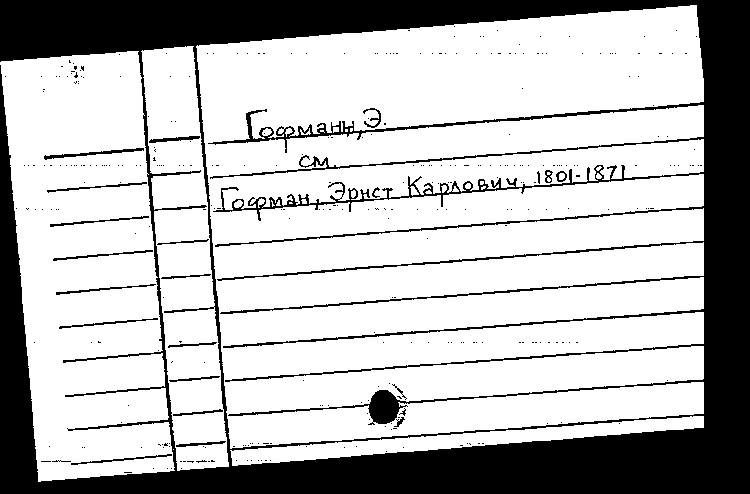 Гофманн, Э.
см.
Гофман, Эрнст Карлович, 1801-1871